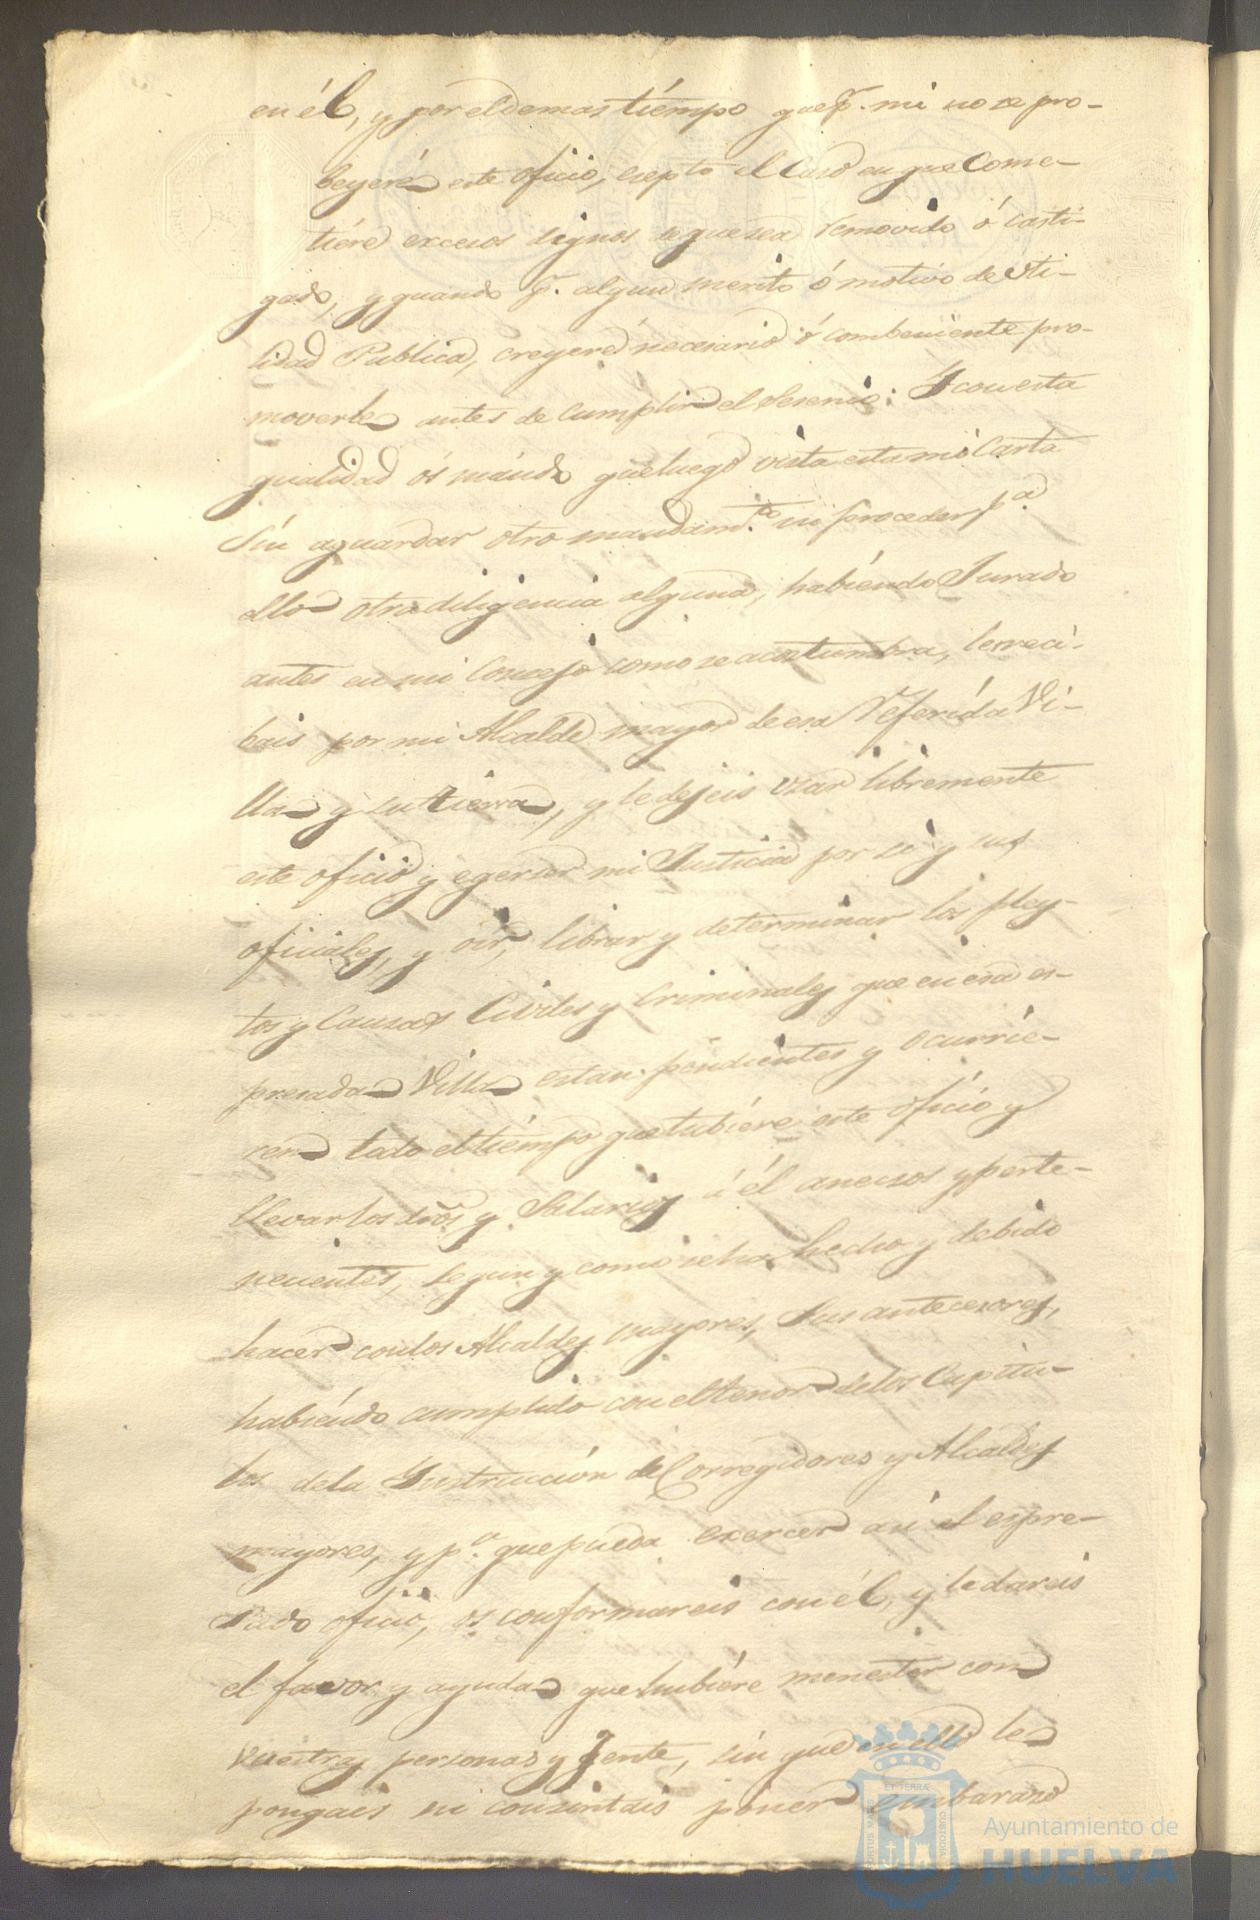 en él, y por el demas tiémpo que p.r mi no se pro-
beyeré este oficio, esepto el Caso en que Come-
tiére excesos dignos de que sea removido ó casti-
gado, y quando p.r algun merito ó motivo de uti-
lidad Publica, creyere necesario ó combeniente pro-
moverle antes de Cumplir el Sexenio: Y con esta
qualidad ós mándo que luego vista esta mi Carta
Sin aguardar otro mandam.to ni proceder p.a
ello otra diligencia alguna, habiéndo Jurado
antes en mi Consejo como se acostumbra, le reci-
bais por mi Alcalde mayor de esa referida Vi-
lla y su tierra, y le dejeis usar libremente
este oficio y egerser mi Justicia por si y sus
oficiales, y oir, librar y determinar los pley-
tos y Causas Civiles y Criminales que en esa es-
presada Villa estan pendientes y ocurrie-
ren todo el tiémpo que tubiére este oficio y
llevar los dros y Salarios á él anexos y perte-
necientes, segun y como se ha hecho y debido
hacer con los Alcaldes mayores, Sus antecesores,
habiéndo cumplido con el tenor de los Capitu-
los de la Ynstruccion de Corregidores y Alcaldes
mayores, y p.a que pueda exercer asi el espre-
sado oficio, os conformareis con él, y le dareis
el favor y ayuda que hubiére menester con
vuestras personas y Jente, sin que en ello le
pongais ni consintais poner embarazo
ET TERRAE
CUSTODIA
PORTUS MARIS
Ayuntamiento de
HUELVA